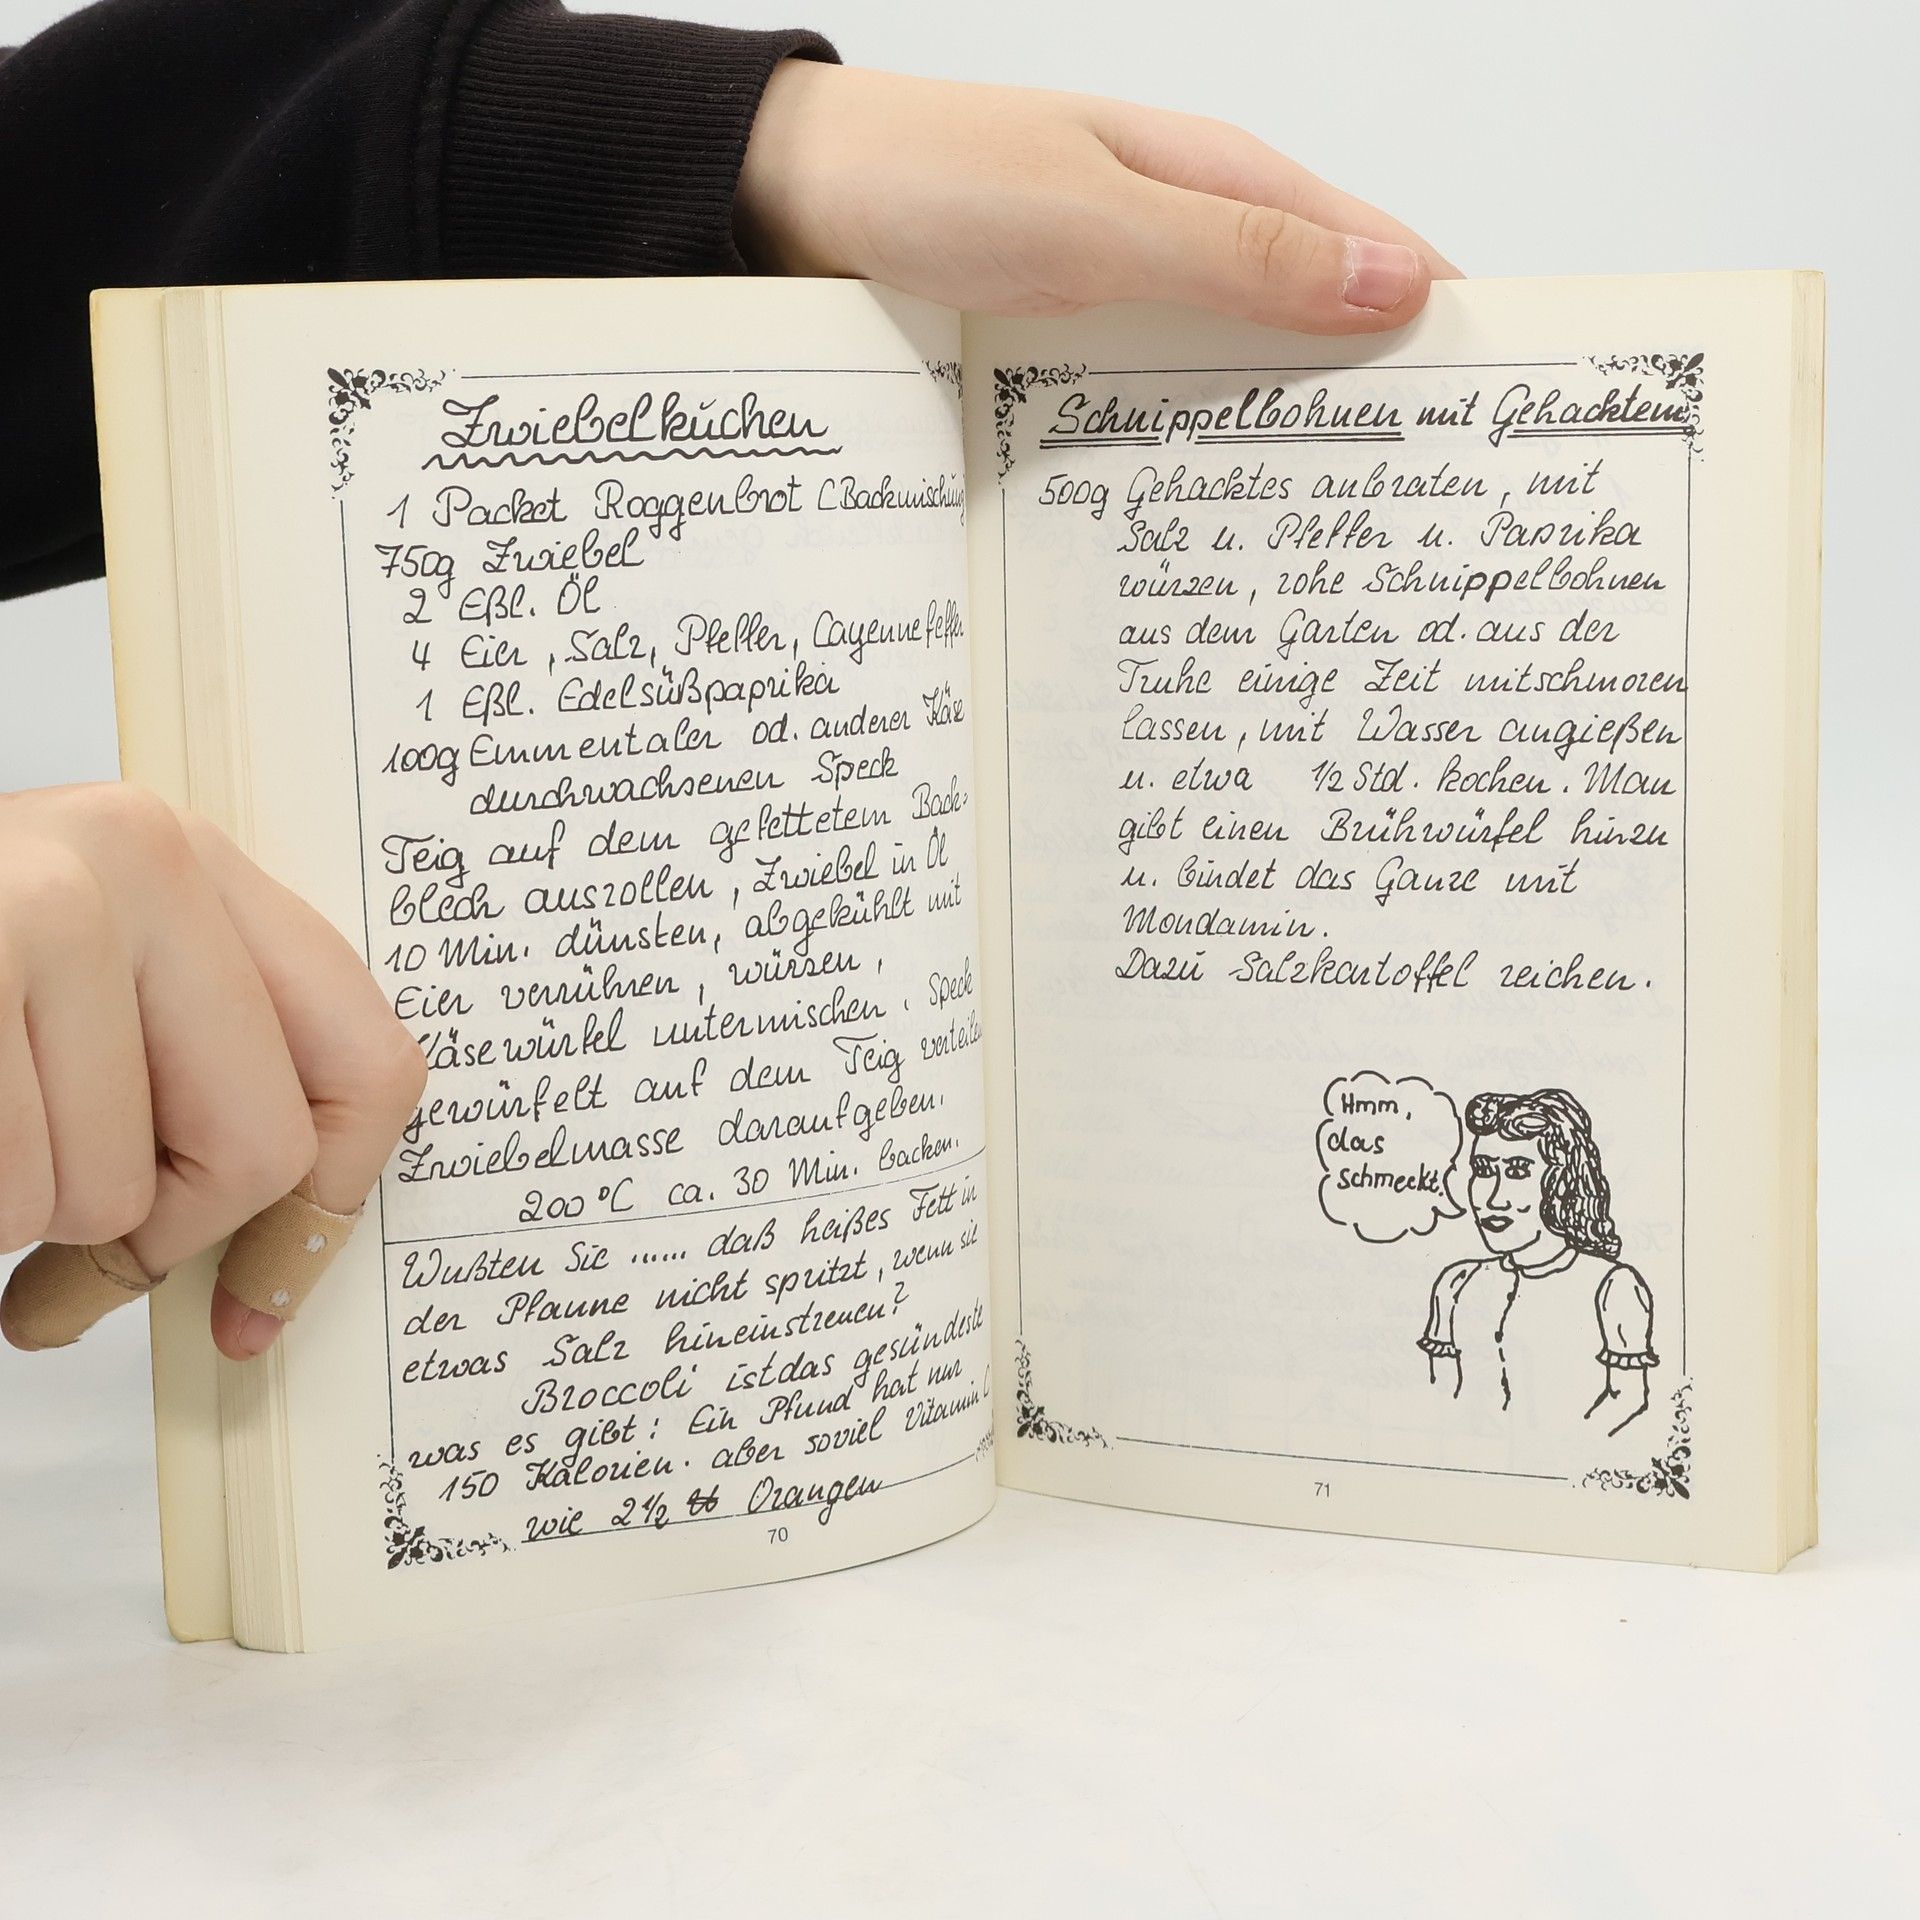 Zwiebelkuchen
1 Packet Roggenbrot (Backmischung
750g Zwiebel
2 Eßl. Öl
4 Eier, Salz, Pfeffer, Cayennefeffer
1 Eßl. Edelsüßpaprika
100g Emmentaler od. anderer Käse
durchwachsenen Speck
Teig auf dem gefettetem Back-
blech ausrollen, Zwiebel in Öl
10 Min. dünsten, abgekühlt mit
Eier verrühren, würzen,
Käsewürfel untermischen. Speck
gewürfelt auf dem Teig verteilen
Zwiebelmasse daraufgeben.
200°C ca. 30 Min. backen.
Wußten Sie ...... daß heißes Fett in
der Pfanne nicht spritzt, wenn sie
etwas Salz hineinstreuen?
Broccoli ist das gesündeste
was es gibt: Ein Pfund hat nur
150 Kalorien. aber soviel Vitamin C
wie 2 1/2 Orangen
70
Schnippelbohnen mit Gehacktem
500g Gehacktes anbraten, mit
Salz u. Pfeffer u. Paprika
würzen, rohe Schnippelbohnen
aus dem Garten od. aus der
Truhe einige Zeit mitschmoren
lassen, mit Wasser angießen
u. etwa 1/2 Std. kochen. Man
gibt einen Brühwürfel hinzu
u. bindet das Ganze mit
Mondamin.
Dazu Salzkartoffel reichen.
Hmm,
das
schmeckt.
71